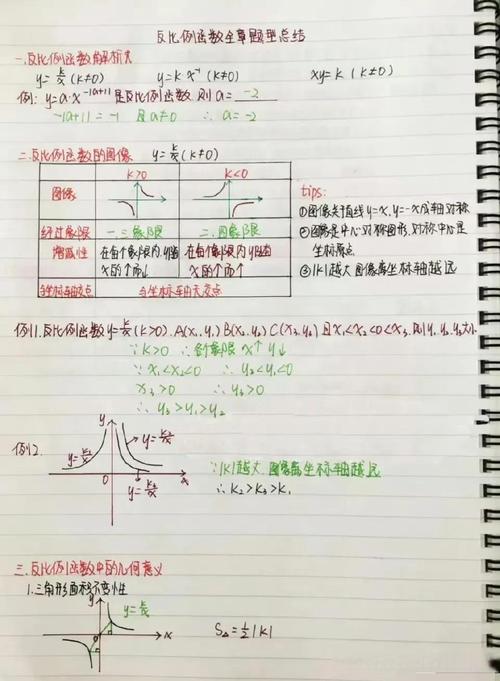 反比例函数全章题型总结
一.反比例函数解析式
y=k/x(k≠0) y=k·x⁻¹(k≠0) xy=k(k≠0)
例:y=a·x^(-|a+1|)是反比例函数.则a= -2
-|a+1|=-1 且a≠0 ∴a=-2
二.反比例函数的图像 y=k/x(k≠0)
k>0 k<0
图像
经过象限 一.三象限 二.四象限
增减性 在每个象限内y随x的↑而↓ 在每个象限内y随x的↑而↑
与坐标轴交点 与坐标轴无交点
tips:
①图像关于直线y=x,y=-x成轴对称
②图像是中心对称图形,对称中心是
坐标原点
③|k|越大图像离坐标轴越远
例1.反比例函数y=k/x(k>0).A(x₁,y₁)B(x₂,y₂)C(x₃,y₃)且x₁<x₂<0<x₃.则y₁.y₂.y₃大小
∵k>0 ∴各象限x↑y↓
∵x₁<x₂<0 ∴y₂<y₁<0
x₃>0 ∴y₃>0
∴y₃>y₁>y₂
例2.
y
0
x
∵|k|越大.图像离坐标轴越远
∴k₂>k₃>k₁
三.反比例函数中的几何意义
1.三角形面积不变性
y
y=k/x
x
S△=½|k|